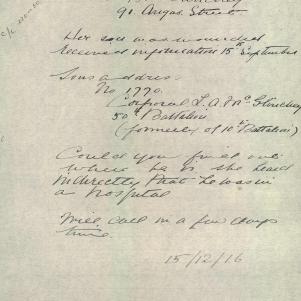 90 Angas Street
Her son was wounded
received information 15th September
Sons address
No 1770
Corporal L. A. McGlinchey
50th Battalion
(formerly of 10th Battalion)
Could you find out
where he is she heard
indirectly that he was in
a hospital
Will call in a few days
time
15/12/16